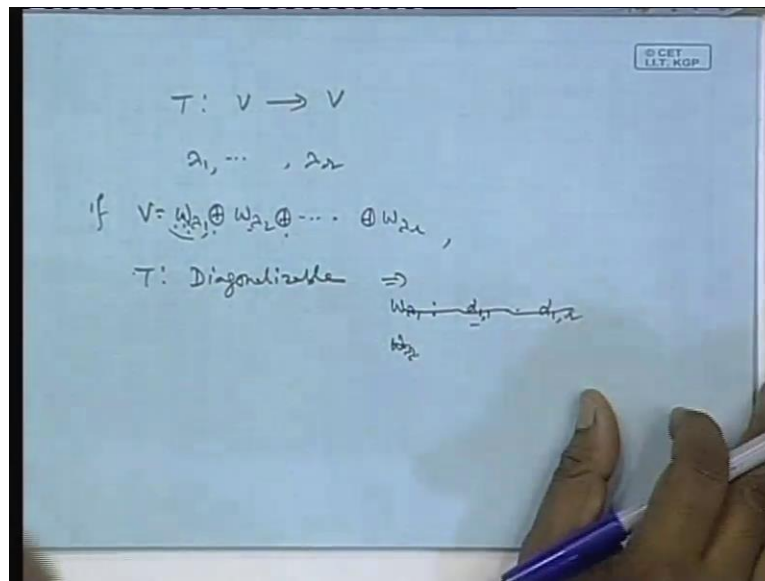 © CET
I.I.T. KGP
T: V → V
λ₁, ⋯ , λᵣ
if V = W_λ₁ ⊕ W_λ₂ ⊕ ⋯ ⊕ W_λᵣ ,
T: Diagonalizable ⇒
W_λ₁ :